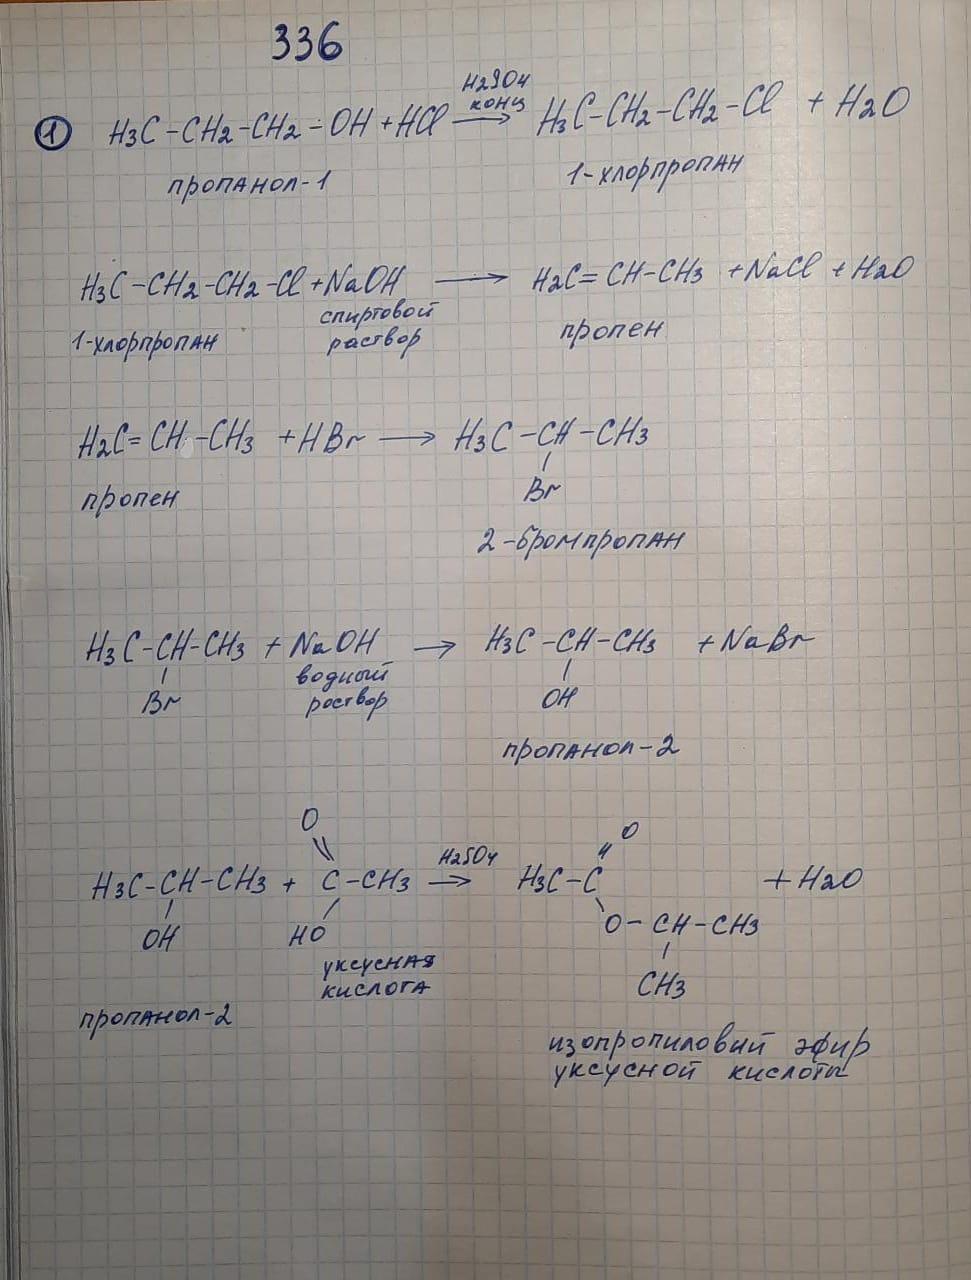 336
① H₃C-CH₂-CH₂-OH + HCl ⟶ H₃C-CH₂-CH₂-Cl + H₂O
H₂SO₄
конц
пропанол-1
1-хлорпропан
H₃C-CH₂-CH₂-Cl + NaOH ⟶ H₂C=CH-CH₃ + NaCl + H₂O
1-хлорпропан
спиртовой
раствор
пропен
H₂C=CH-CH₃ + HBr ⟶ H₃C-CH-CH₃
Br
пропен
2-бромпропан
H₃C-CH-CH₃ + NaOH ⟶ H₃C-CH-CH₃ + NaBr
Br
водный
роствор
OH
пропанол-2
O
O
H₃C-CH-CH₃ + C-CH₃ ⟶ H₃C-C + H₂O
H₂SO₄
OH
HO
O-CH-CH₃
CH₃
уксусная
кислота
пропанол-2
изопропиловий эфир
уксусной кислоты